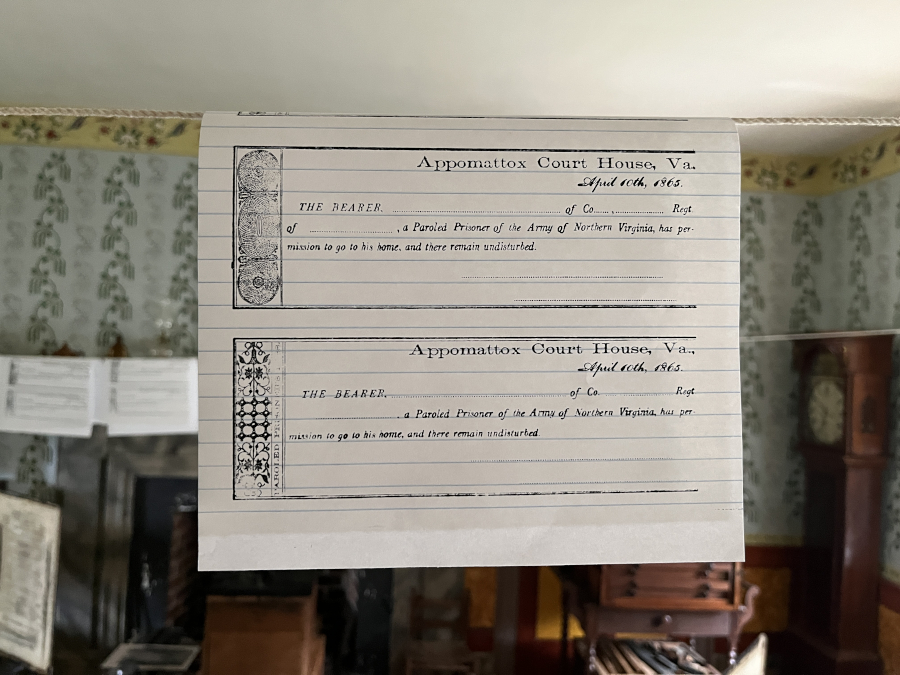 Appomattox Court House, Va.
April 10th, 1865.
THE BEARER, of Co. Regt
of , a Paroled Prisoner of the Army of Northern Virginia, has per-
mission to go to his home, and there remain undisturbed.
Appomattox Court House, Va.,
April 10th, 1865.
THE BEARER, of Co. Regt
, a Paroled Prisoner of the Army of Northern Virginia, has per-
mission to go to his home, and there remain undisturbed.